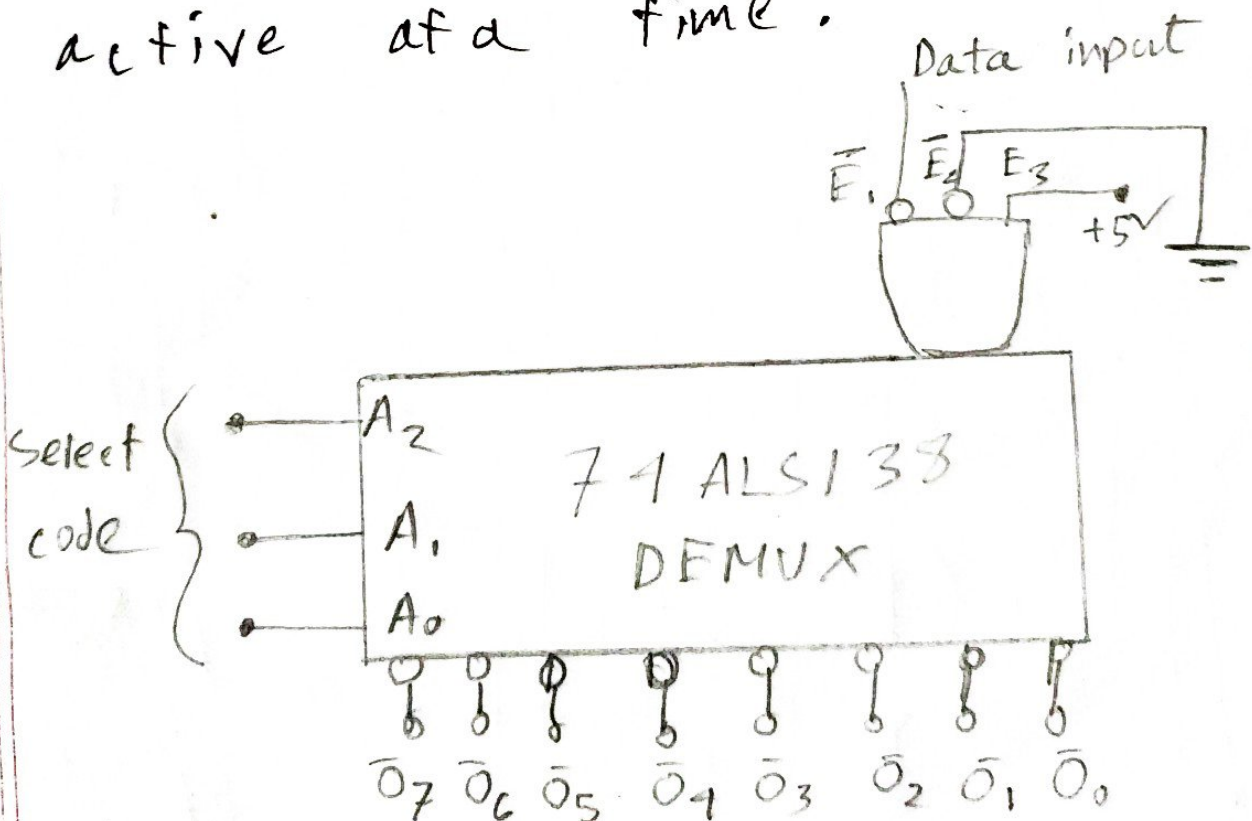 active at a time.
Data input
Ē₁ Ē₂ E₃
+5V
Select
code
A₂
A₁
A₀
74ALS138
DEMUX
Ō₇ Ō₆ Ō₅ Ō₄ Ō₃ Ō₂ Ō₁ Ō₀